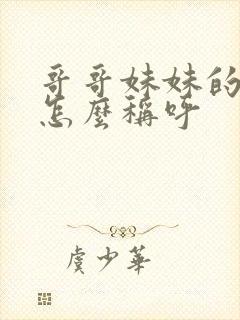 哥哥妹妹的
怎麼稱呼
虞少華